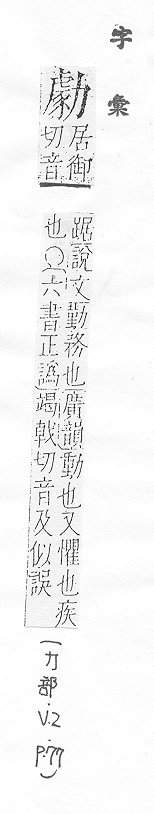 字彙
勮
居御
切音
踞說文勤務也廣韻動也又懼也疾
也○六書正譌竭戟切音及似誤
(力部.V.2 P.77)